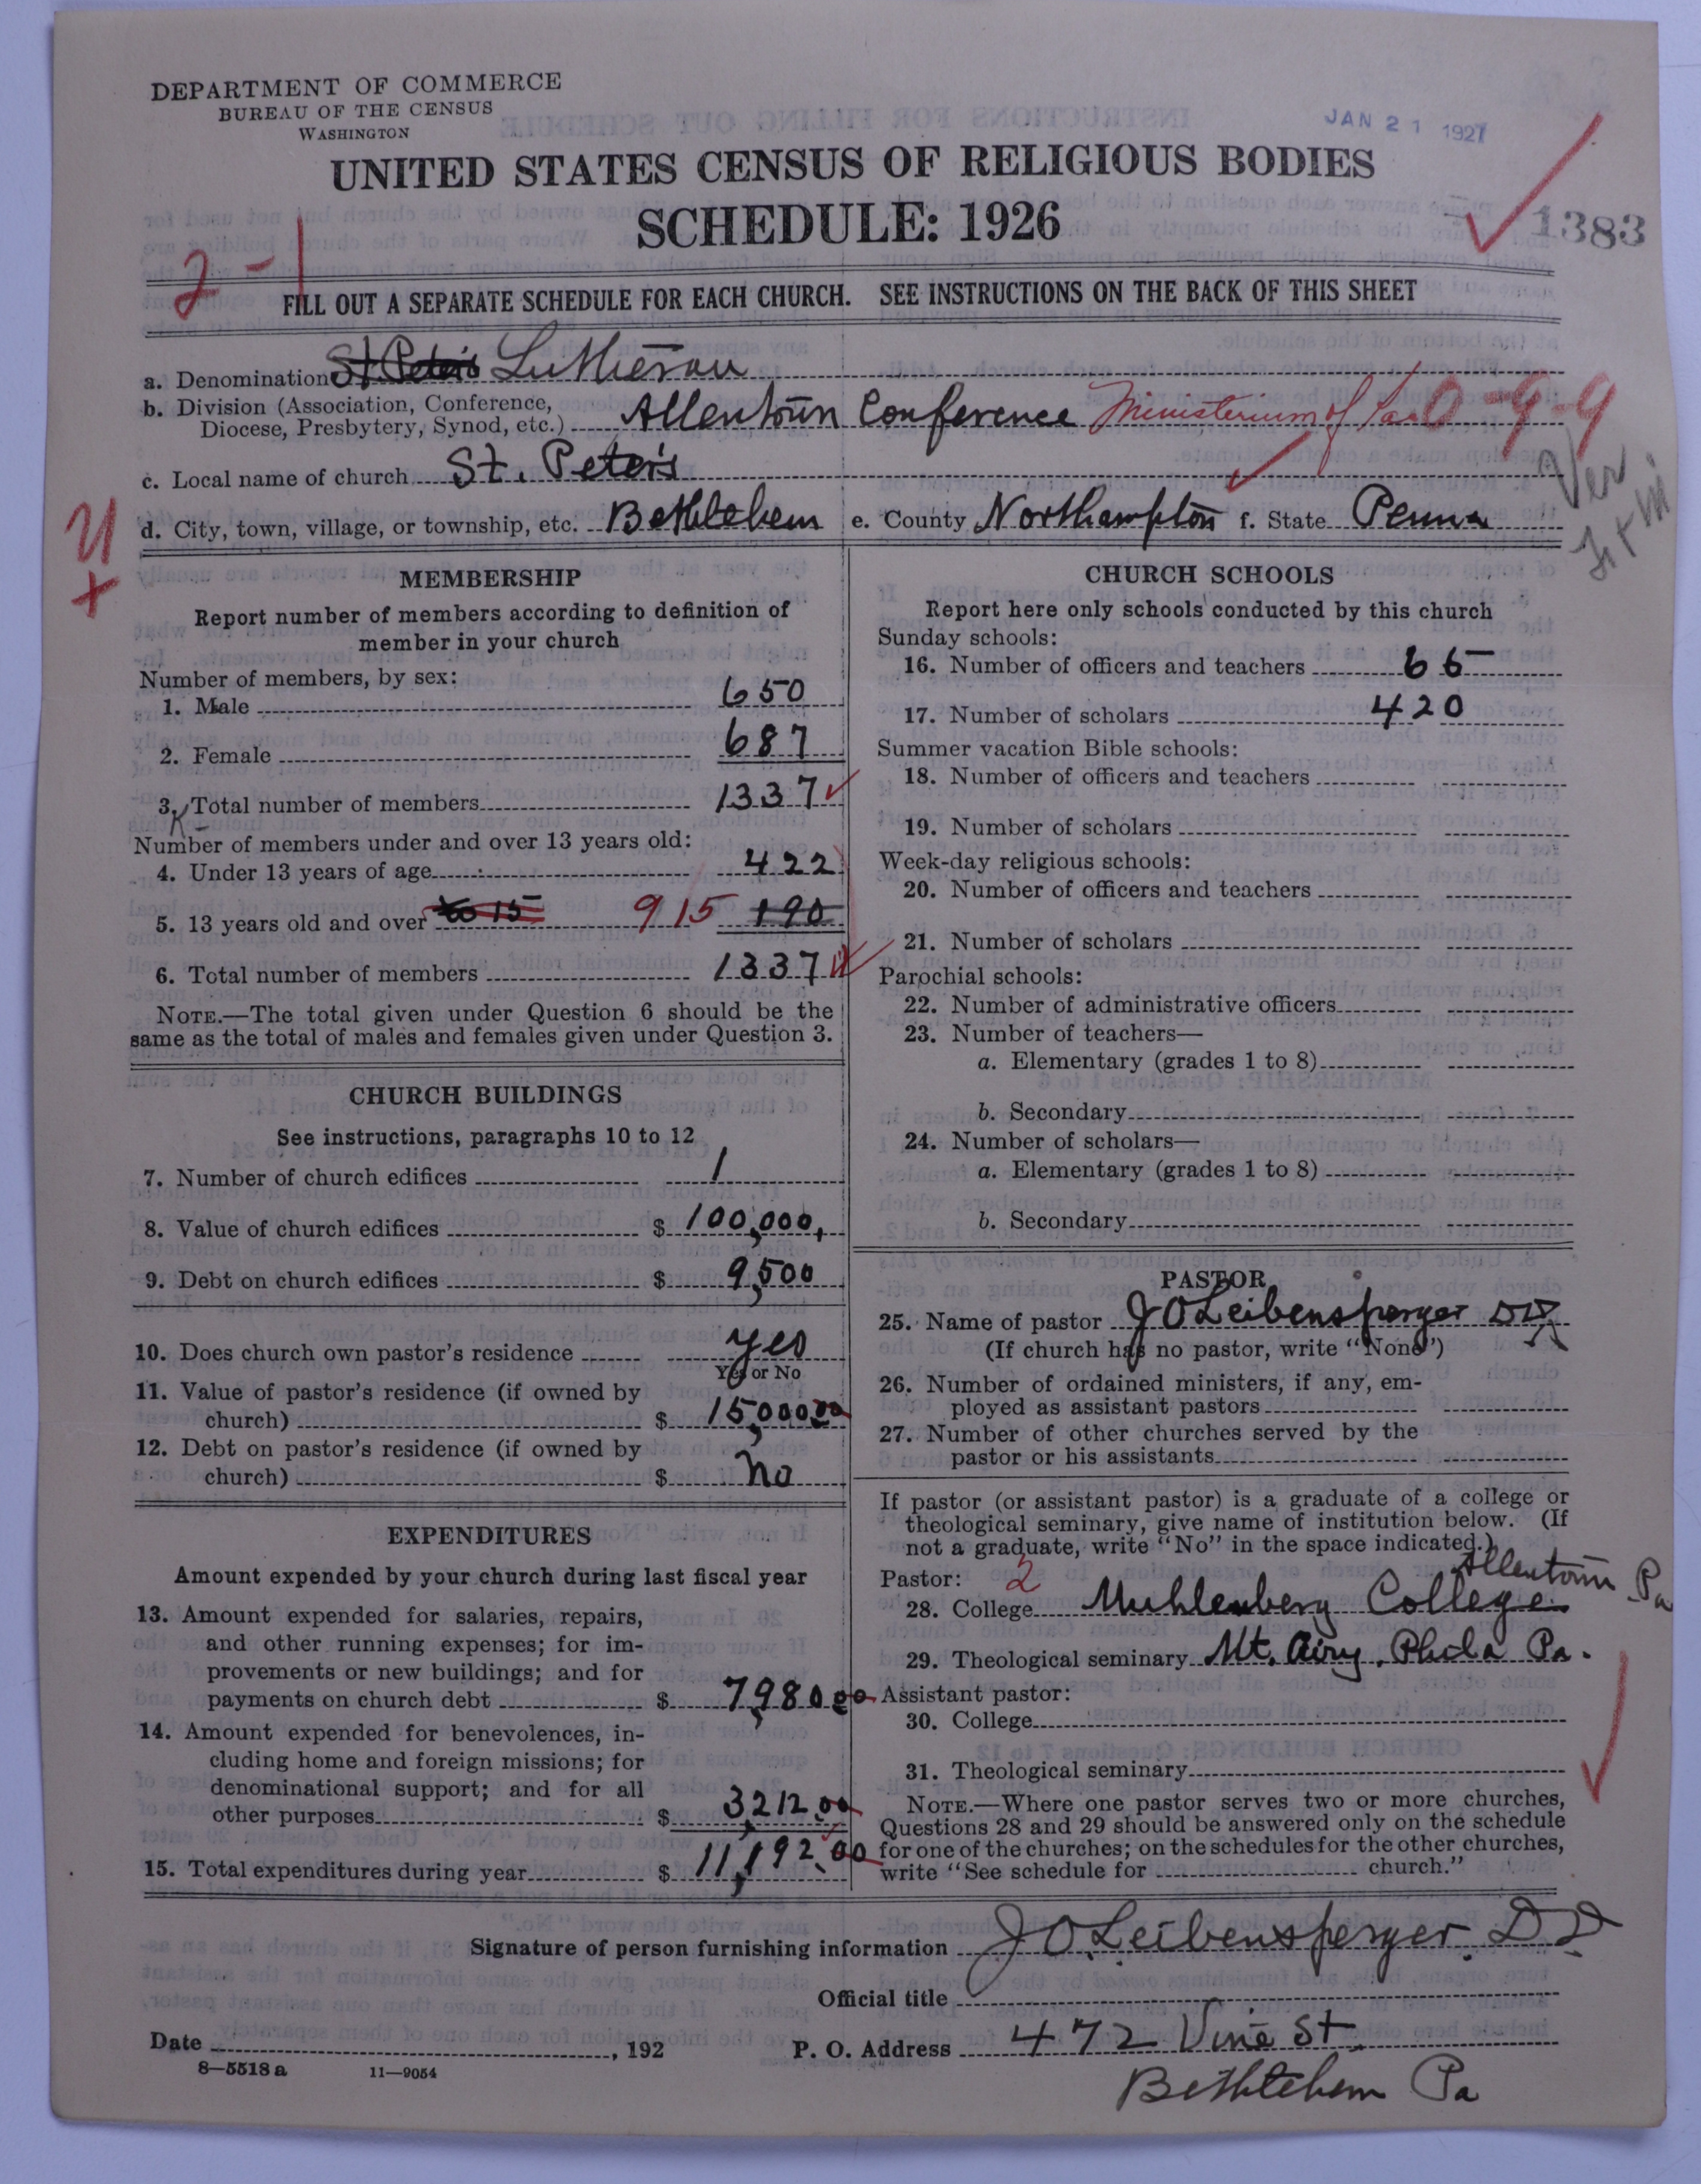 DEPARTMENT OF COMMERCE
BUREAU OF THE CENSUS
WASHINGTON
JAN 21 1927
UNITED STATES CENSUS OF RELIGIOUS BODIES
SCHEDULE: 1926
1383
2-1
FILL OUT A SEPARATE SCHEDULE FOR EACH CHURCH. SEE INSTRUCTIONS ON THE BACK OF THIS SHEET
a. Denomination St. Peter's Lutheran
b. Division (Association, Conference, Diocese, Presbytery, Synod, etc.) Allentown Conference Ministerium of Pa. 0-9-9
c. Local name of church St. Peter's
d. City, town, village, or township, etc. Bethlehem e. County Northampton f. State Penna
Ver
MEMBERSHIP
Report number of members according to definition of
member in your church
Number of members, by sex:
1. Male 650
2. Female 687
3. Total number of members 1337
Number of members under and over 13 years old:
4. Under 13 years of age 422
5. 13 years old and over to 15 915 190
6. Total number of members 1337
NOTE.—The total given under Question 6 should be the
same as the total of males and females given under Question 3.
CHURCH BUILDINGS
See instructions, paragraphs 10 to 12
7. Number of church edifices 1
8. Value of church edifices $ 100,000,
9. Debt on church edifices $ 9,500
10. Does church own pastor's residence yes
Yes or No
11. Value of pastor's residence (if owned by
church) $ 15,000.00
12. Debt on pastor's residence (if owned by
church) $ No
EXPENDITURES
Amount expended by your church during last fiscal year
13. Amount expended for salaries, repairs,
and other running expenses; for im-
provements or new buildings; and for
payments on church debt $ 7,980 00
14. Amount expended for benevolences, in-
cluding home and foreign missions; for
denominational support; and for all
other purposes $ 3,212.00
15. Total expenditures during year $ 11,192.00
CHURCH SCHOOLS
Report here only schools conducted by this church
Sunday schools:
16. Number of officers and teachers 65
17. Number of scholars 420
Summer vacation Bible schools:
18. Number of officers and teachers
19. Number of scholars
Week-day religious schools:
20. Number of officers and teachers
21. Number of scholars
Parochial schools:
22. Number of administrative officers
23. Number of teachers—
a. Elementary (grades 1 to 8)
b. Secondary
24. Number of scholars—
a. Elementary (grades 1 to 8)
b. Secondary
PASTOR
25. Name of pastor J O Leibensperger DD
(If church has no pastor, write "None")
26. Number of ordained ministers, if any, em-
ployed as assistant pastors
27. Number of other churches served by the
pastor or his assistants
If pastor (or assistant pastor) is a graduate of a college or
theological seminary, give name of institution below. (If
not a graduate, write "No" in the space indicated.)
Pastor: 2 Allentown Pa
28. College Muhlenberg College
29. Theological seminary Mt. Airy, Phila Pa.
Assistant pastor:
30. College
31. Theological seminary
NOTE.—Where one pastor serves two or more churches,
Questions 28 and 29 should be answered only on the schedule
for one of the churches; on the schedules for the other churches,
write "See schedule for church."
Signature of person furnishing information J O Leibensperger. D D
Official title
Date , 192 P. O. Address 472 Vine St
Bethlehem Pa
8—5518 a 11—9054